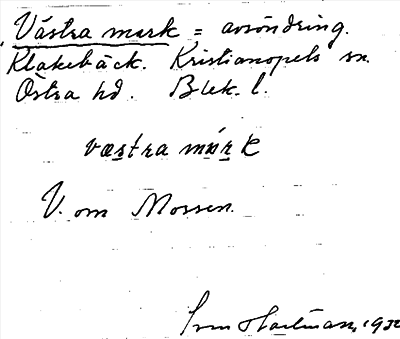 Västra mark = avsöndring.
Klakebäck. Kristianopels sn.
Östra hd. Blek. l.
væstra mark
V. om Mossen.
Hartman, 193